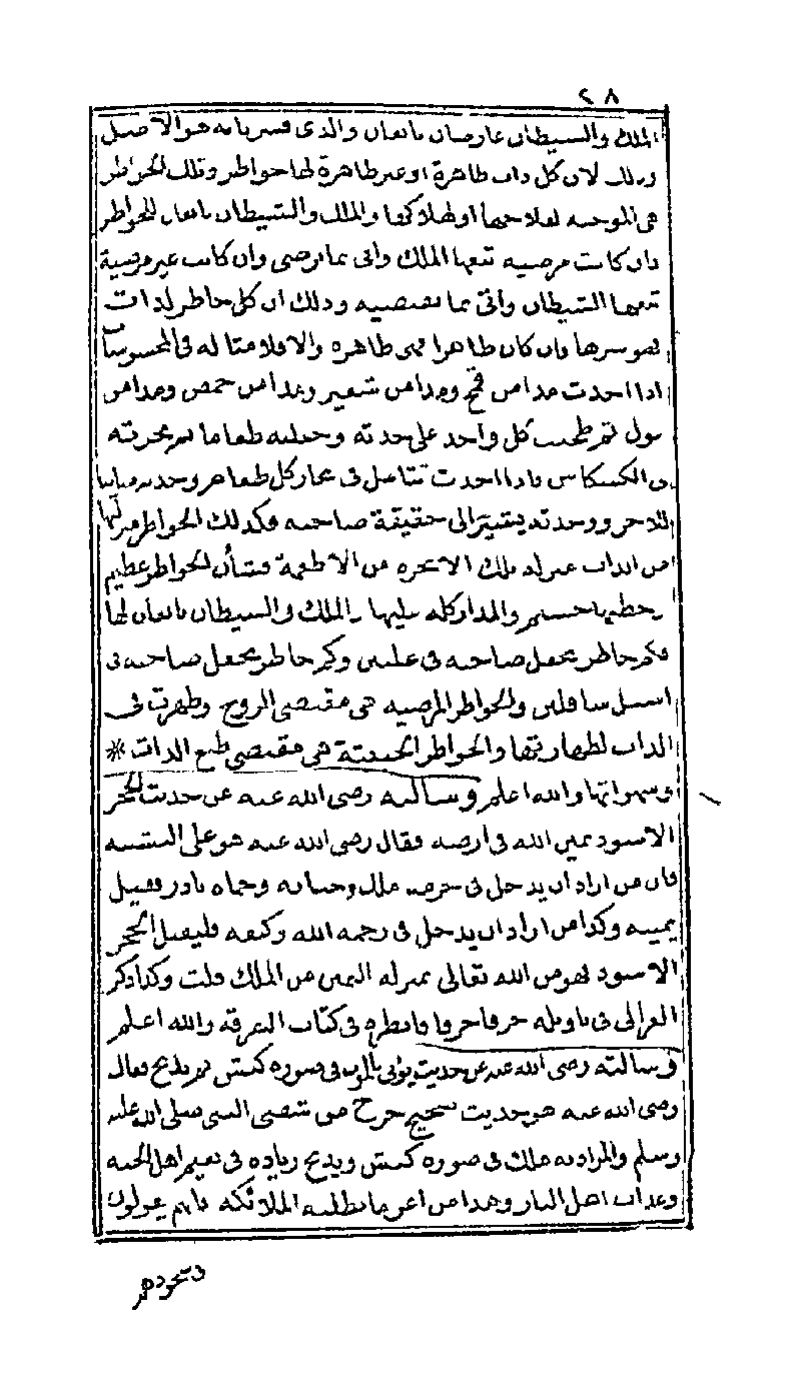 ٢٨
الملك والشيطان عارضان تابعان والذى فسرنا به هو الاصل
وذلك لان كل ذات طاهرة او غير طاهرة لها خواطر وتلك الخواطر
هى الموجبة لفلاحها او لهلاكها والملك والشيطان تابعان للخواطر
فان كانت مرضيه تبعها الملك واتى بما يرضى وان كانت غير مرضية
تبعها الشيطان واتى بما تقتضيه وذلك ان كل خاطر لذات
فهو سرها فان كان طاهرا فهى طاهره والا فلا مثاله فى المحسوسات
اذا اخذت مدا من قمح ومدا من شعير ومدا من حمص ومدا من
فول ثم طحنت كل واحد على حدته وجعلته طعاما ثم بخرته
فى الكسكاس فاذا اخذت تتامل فى بخار كل طعام وحدته مباينا
للاخر ووجدته يشير الى حقيقة صاحبه وكذلك الخواطر منزلتها
من الذات بمنزلة تلك الابخره من الاطعمة فشأن الخواطر عظيم
وخطبها جسيم والمدار كله عليها والملك والشيطان تابعان لها
فكم خاطر يجعل صاحبه فى عليين وكم خاطر يجعل صاحبه فى
اسفل سافلين والخواطر المرضيه هى مقتضى الروح وظهرت فى
الذات لطهارتها والخواطر الخبيثة هى مقتضى طبع الذات *
وشهواتها والله اعلم وسالته رضى الله عنه عن حديث الحجر
الاسود يمين الله فى ارضه فقال رضى الله عنه هو على التشبيه
فان من اراد ان يدخل فى حرمة ملك وحمايته وحماه بادر فقبل
يمينه وكذا من اراد ان يدخل فى رحمة الله وكنفه فليقبل الحجر
الاسود فهو من الله تعالى بمنزلة اليمين من الملك قلت وكذا ذكر
الغزالى فى تاويله حرفا حرفا فانظره فى كتاب التفرقة والله اعلم
وسالته رضى الله عنه عن حديث يؤتى بالموت فى صورة كبش ثم يذبح فقال
رضى الله عنه هو حديث صحيح خرج من شفتى النبى صلى الله عليه
وسلم والمراد به ملك فى صورة كبش ويذبح زيادة فى نعيم اهل الجنه
وعذاب اهل النار وهذا من اعز ما تطلبه الملائكه فانهم يقولون